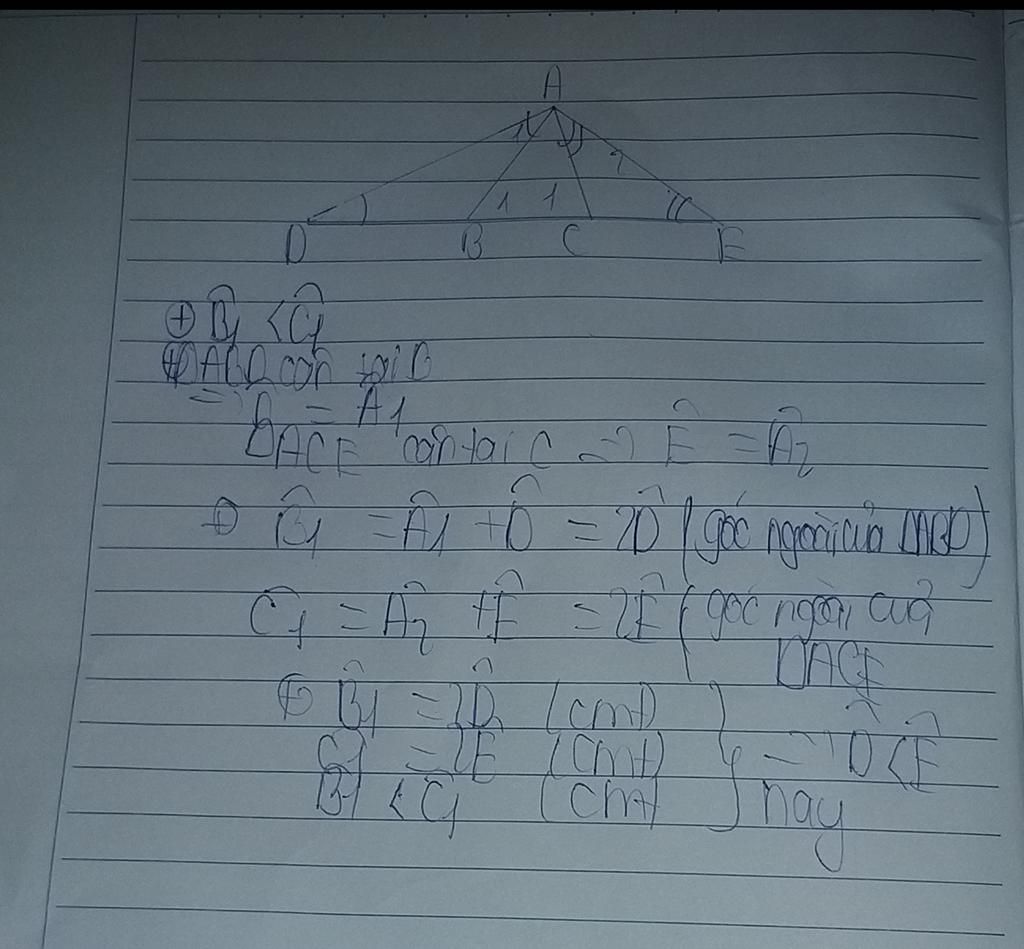 A
1 2
1 1
D B C E
⊕ B̂1 < Ĉ1
⊕ ΔABD cân tại B
=> D̂ = Â1
ΔACE cân tại C => Ê = Â2
⊕ B̂1 = Â1 + D̂ = 2D̂ (góc ngoài của ΔABD)
Ĉ1 = Â2 + Ê = 2Ê (góc ngoài của
ΔACE
⊕ B̂1 = 2D̂ (cmt)
Ĉ1 = 2Ê (cmt) } => D̂ < Ê
B̂1 < Ĉ1 (cmt) hay